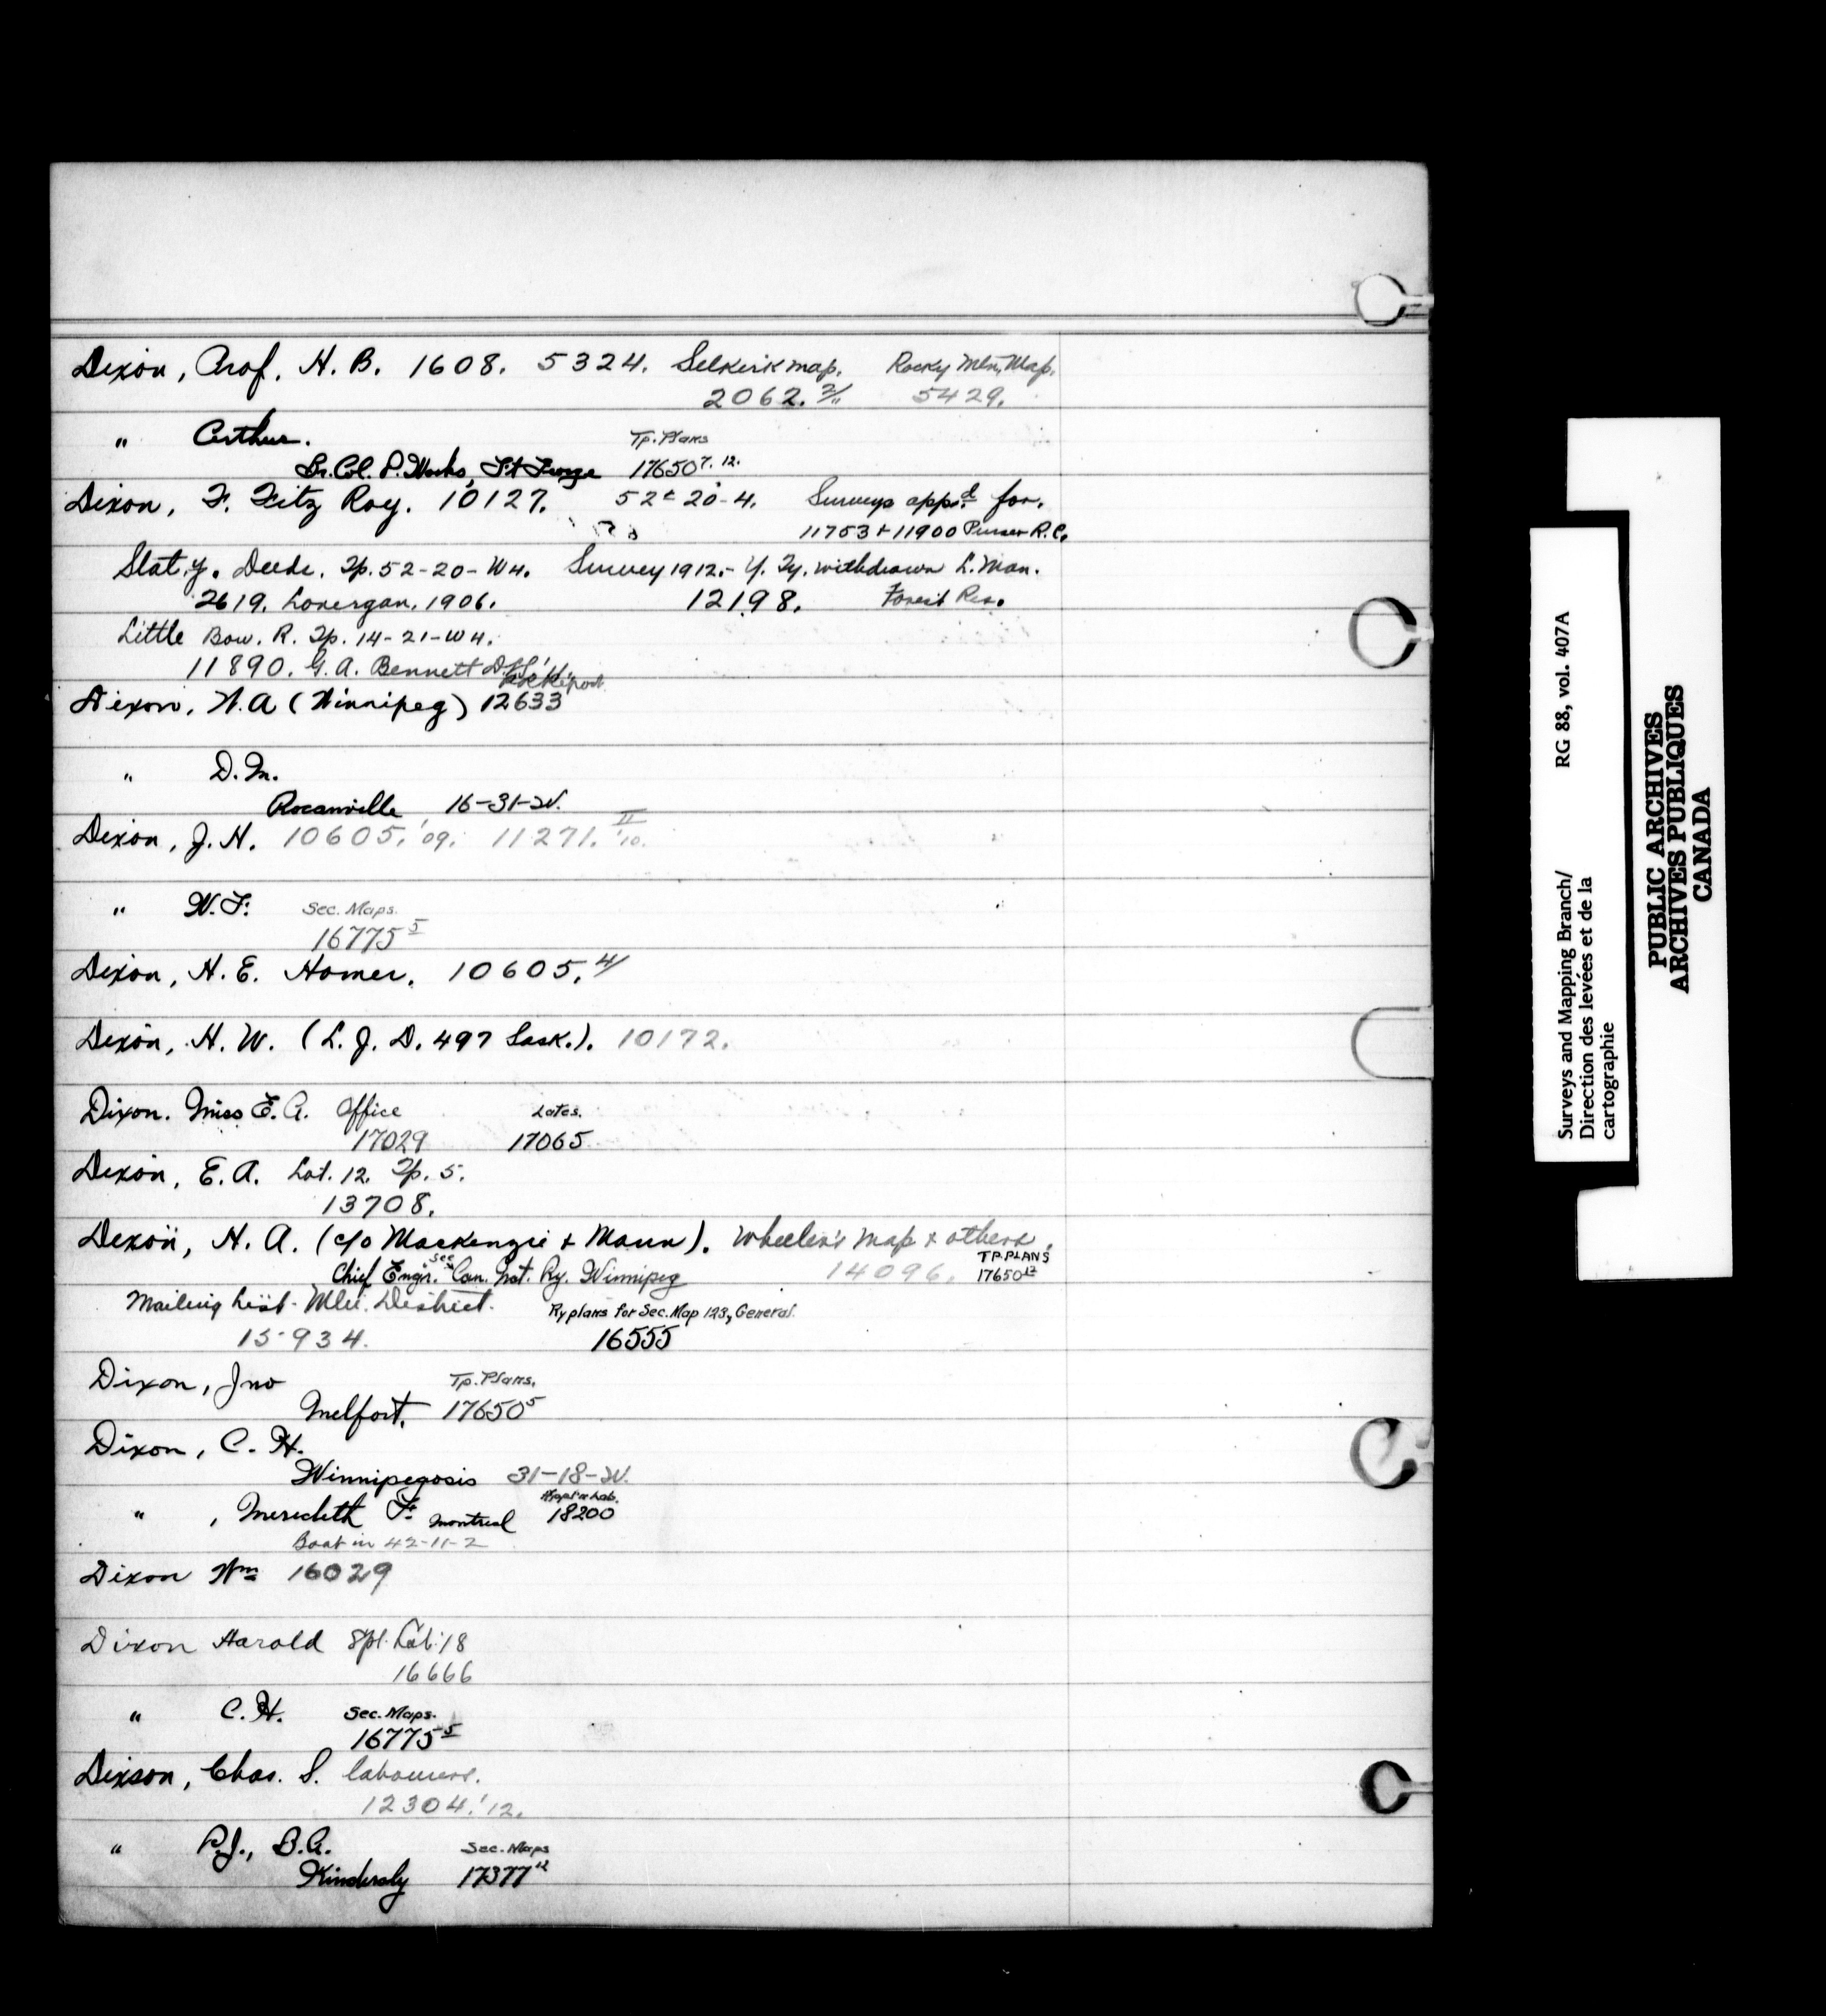 Dixon, Prof. H. B. 1608. 5324. Selkirk map. Rocky Mtn. Map.
2062. 2/11 5429.
" Arthur. Tp. Plans
Br. Col. P. Works, Ft George 17650 7. 12.
Dixon, F. Fitz Roy. 10127. 52 & 20-4. Surveys app'd for.
11753 + 11900 Purser R.C.
Stat'y. Deeds. Tp. 52-20-W4. Survey 1912.- Y. Ty. withdrawn L. Man.
2619. Lonergan. 1906. 12198. Forest Res.
Little Bow. R. Tp. 14-21-W4.
11890. G. A. Bennett D.L.S.
Report
Dixon, H.A (Winnipeg) 12633
" D. M.
Rocanville, 16-31-W.
Dixon, J. H. 10605. '09. 11271. II '10.
" W. F. Sec. Maps.
16775 5
Dixon, H. E. Homer. 10605. 4/
Dixon, H. W. (L. J. D. 497 Sask.). 10172.
Dixon. Miss E. A. Office Lates.
17029 17065
Dixon, E. A. Lot. 12. Tp. 5.
13708.
Dixon, H. A. (c/o Mackenzie & Mann). Wheeler's map & others.
Chief Engr. see Can. Not. Ry. Winnipeg 14096. TP. PLANS 17650 12
Mailing List - Mln. District. Ry plans for Sec. Map 123, General.
15934. 16555
Dixon, Jno Tp. Plans.
Melfort. 17650 5
Dixon, C. H.
Winnipegosis 31-18-W.
" , Meredith F. Montreal 18200
Boat in 42-11-2
Dixon Wm 16029
Dixon Harold Spl. Lab. '18
16666
" C. H. Sec. Maps.
16775 5
Dixson, Chas. S. labourers.
12304. '12.
" P.J., B.A. Sec. Maps
Kindersly 17377 12
Surveys and Mapping Branch/ RG 88, vol. 407A
Direction des levées et de la
cartographie
PUBLIC ARCHIVES
ARCHIVES PUBLIQUES
CANADA